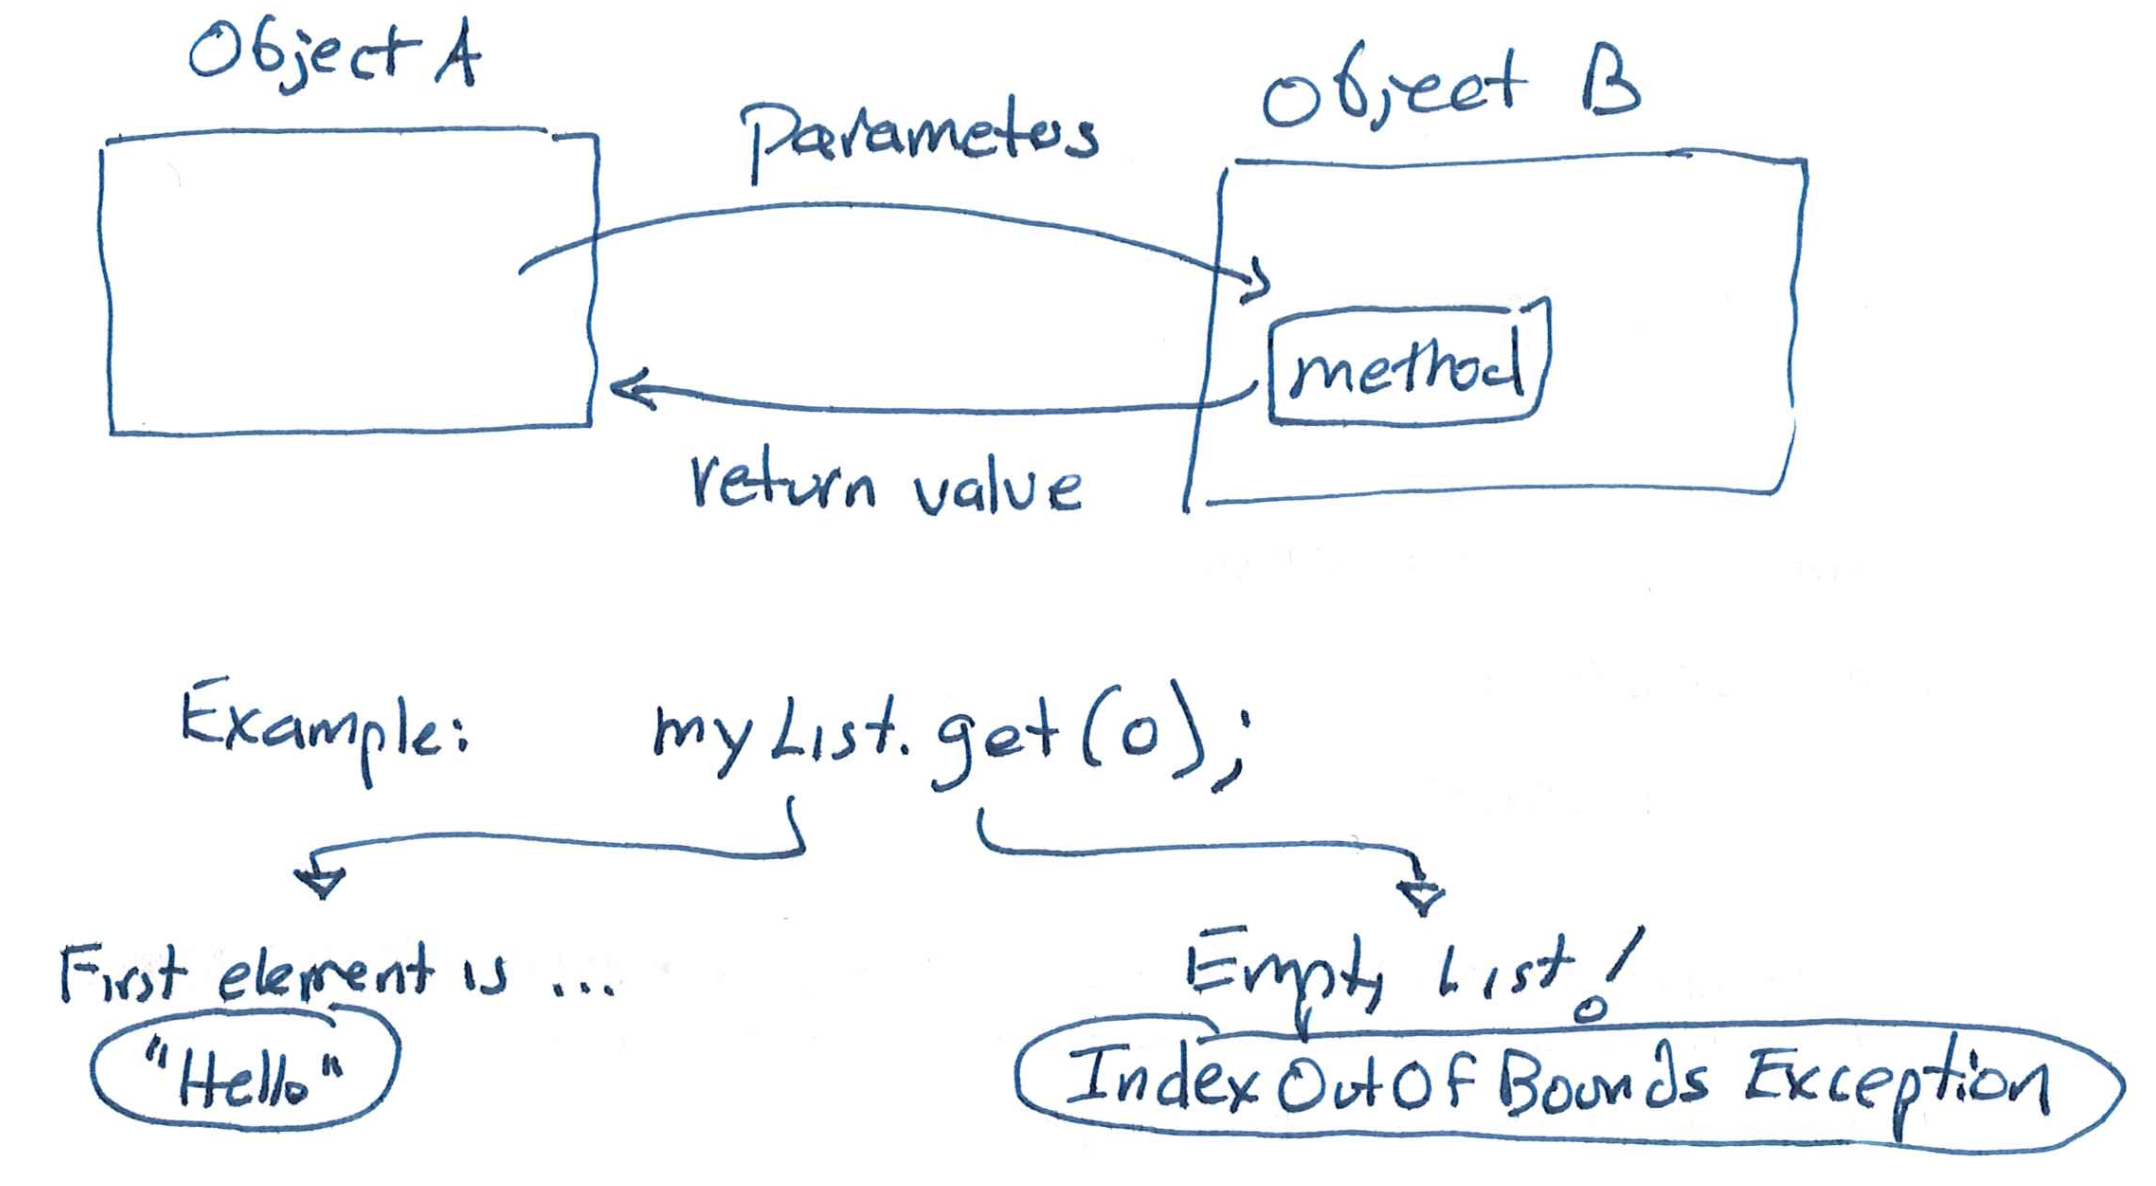 Object A
Object B
Parameters
method
return value
Example: myList.get(0);
First element is ...
"Hello"
Empty List!
IndexOutOfBoundsException